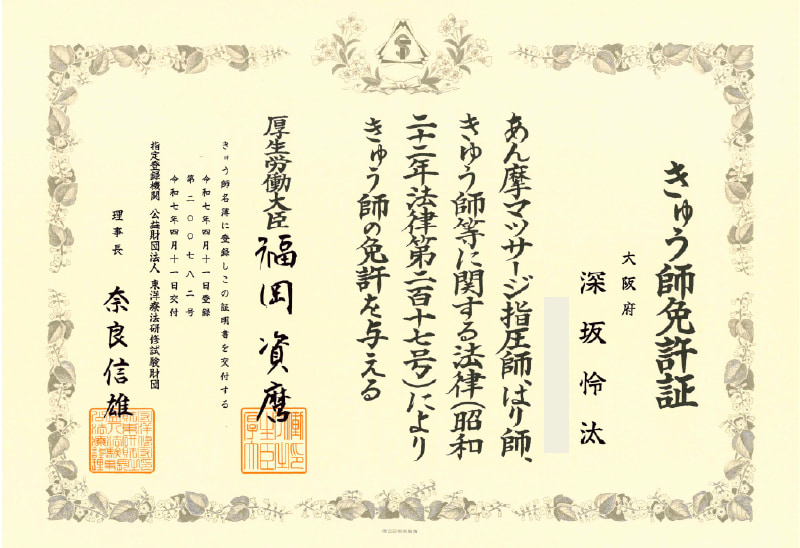 きゅう師免許証
大阪府
深坂怜汰
あん摩マッサージ指圧師、はり師、
きゅう師等に関する法律(昭和
二十二年法律第二百十七号)により
きゅう師の免許を与える
厚生労働大臣 福岡資麿
きゅう師名簿に登録しこの証明書を交付する
令和七年四月十一日登録
第二〇〇七八二号
令和七年四月十一日交付
指定登録機関 公益財団法人 東洋療法研修試験財団
理事長 奈良信雄